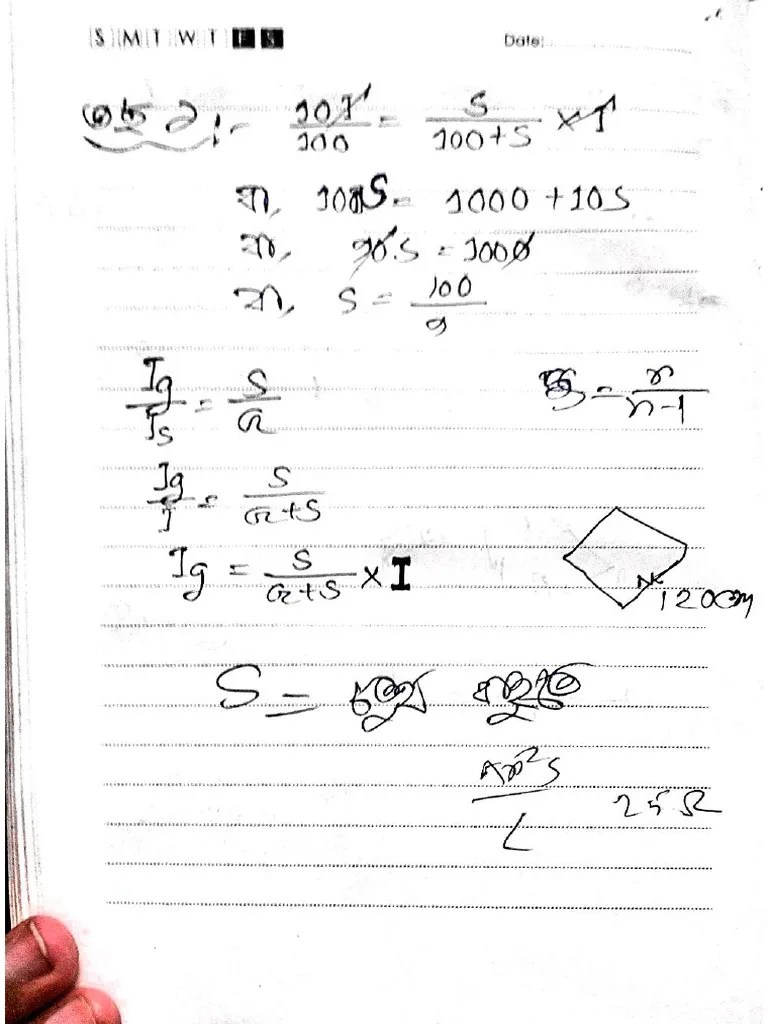 S M T W T F S Date:
10I/100 = S/(100+S) × I
বা, 100S = 1000 + 10S
বা, 90S = 1000
বা, S = 100/9
Ig/Is = S/G
n/(n-1)
Ig/I = S/(G+S)
Ig = S/(G+S) × I
120cm
S =
πr²S/L 25Ω